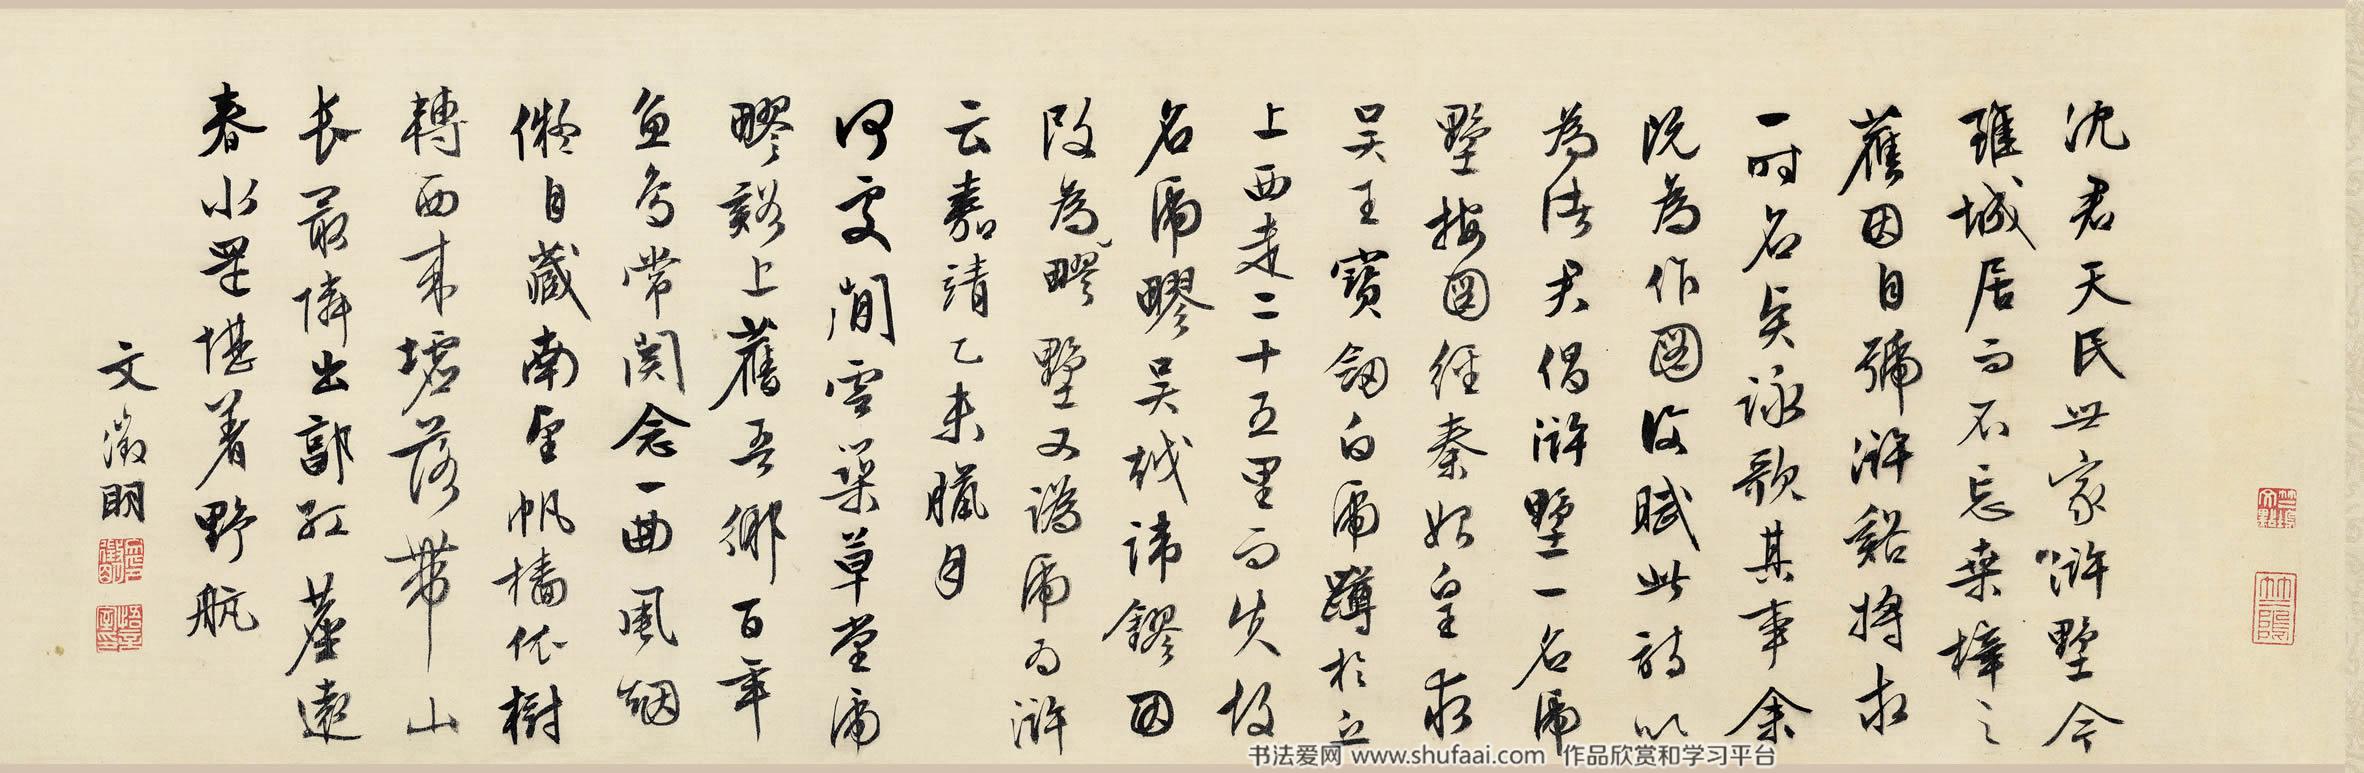 沈君天民世家滸墅今
雖城居而不忘桑梓之
舊因自號滸谿將求
一時名勝詠歌其事余
既為作圖復賦此詩以
為諸君倡滸墅一名虎
墅按圖經秦始皇求
吳王寶劔白虎蹲於丘
上西走二十五里而失故
名虎疁吳越諱鏐因
改為疁墅又譌虎為滸
云嘉靖乙未臘月
何處閒雲築草堂虎
疁谿上舊吾鄉百年
魚鳥常関念一曲風烟
儗自藏南望帆檣依樹
轉西來墟落帶山
長最憐出郭紅塵遠
春水還堪著野航
文徵明
书法爱网 www.shufaai.com 作品欣赏和学习平台